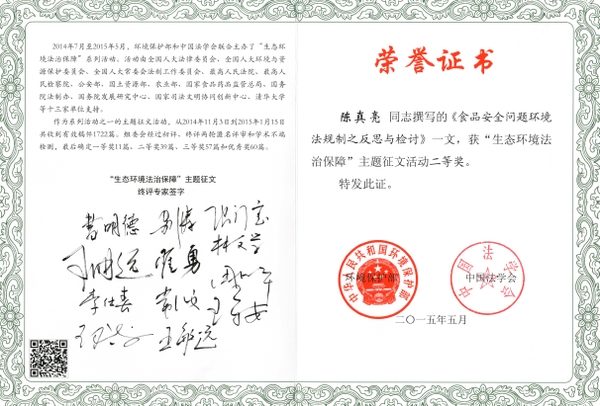 2014年7月至2015年5月，环境保护部和中国法学会联合主办了“生态环
境法治保障”系列活动。活动由全国人大法律委员会、全国人大环境与资
源保护委员会、全国人大常委会法制工作委员会、最高人民法院、最高人
民检察院、公安部、国土资源部、农业部、国家食品药品监管总局、国务
院法制办、国务院发展研究中心、国家司法文明协同创新中心、清华大学
等十三家单位支持。
作为系列活动之一的主题征文活动，从2014年11月3日到2015年1月15日
共收到有效稿件1722篇。组委会经过初评、终评两轮匿名评审和学术不端
检测，最后确定一等奖11篇、二等奖39篇、三等奖57篇和优秀奖60篇。
“生态环境法治保障”主题征文
终评专家签字
曹明德
李仕春
荣誉证书
陈真亮 同志撰写的《食品安全问题环境
法规制之反思与检讨》一文，获“生态环境法
治保障”主题征文活动二等奖。
特发此证。
中华人民共和国环境保护部
环境保护部
中国法学会
中国法学会
二〇一五年五月